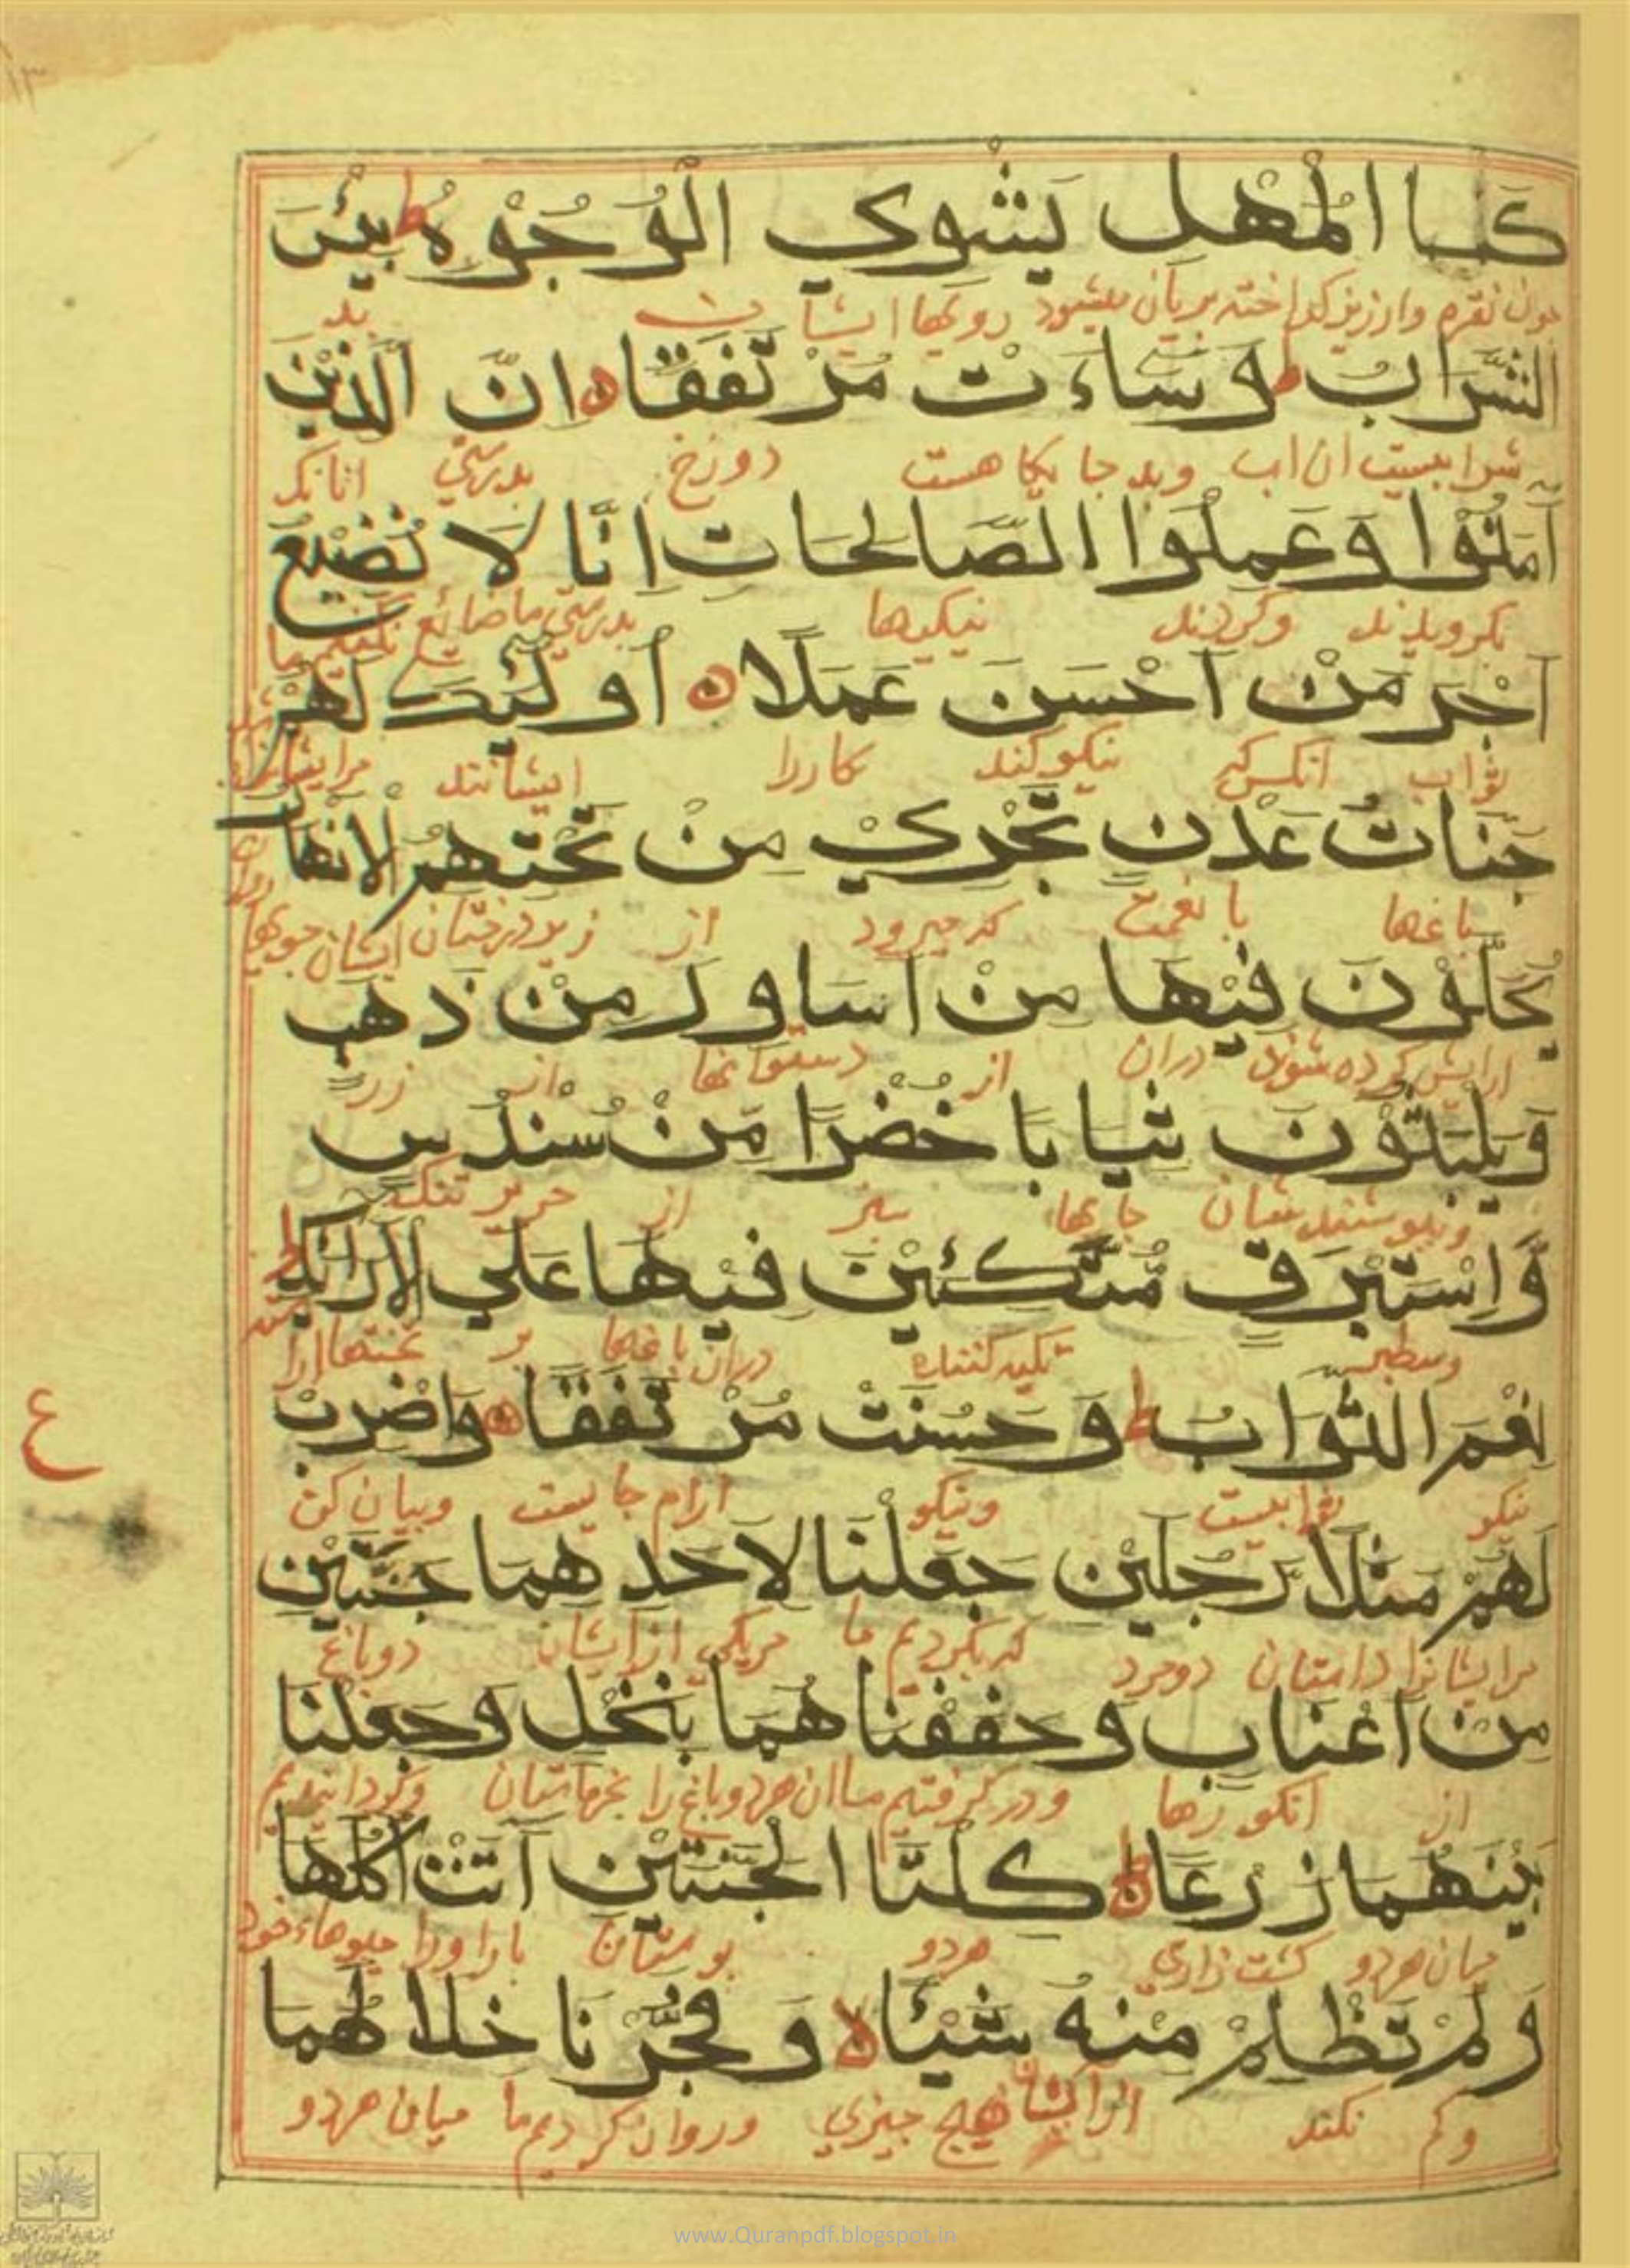 كَاالْمُهْلِ يَشْوِي الْوُجُوْهَ ط بِئْسَ
چون نقره وارزیز کداخته بریان میشود رویها ایشان بد
الشَّرَابُ ط وَسَاءَتْ مُرْتَفَقًا ه اِنَّ الَّذِيْنَ
شرابیست ان اب وبد جایکاهست دوزخ بدرستی انانکه
آمَنُوْا وَعَمِلُوا الصَّالِحَاتِ اِنَّا لَا نُضِيْعُ
بکرویدند وکردند نیکیها بدرستی ما ضائع نکنیم ما
اَجْرَ مَنْ اَحْسَنَ عَمَلًا ه اُولٰئِكَ لَهُمْ
ثواب انکس که نیکو کند کاررا ایشانند مرایشانرا
جَنَاتُ عَدْنٍ تَجْرِيْ مِنْ تَحْتِهِمُ الْاَنْهَارُ
باغها با نعمت که میرود از زیر درختان ایشان جویها
يُحَلَّوْنَ فِيْهَا مِنْ اَسَاوِرَ مِنْ ذَهَبٍ
ارایش کرده شوند دران از دستوانها از زر
وَيَلْبَسُوْنَ ثِيَابًا خُضْرًا مِّنْ سُنْدُسٍ
وبپوشند شان جامها سبز از حریر تنک
وَّاِسْتَبْرَقٍ مُّتَّكِئِيْنَ فِيْهَا عَلَي الْاَرَائِكِ ط
وسطبر تکیه کننده دران باغها بر تختها اراسته
نِعْمَ الثَّوَابُ ط وَحَسُنَتْ مُرْتَفَقًا ه وَاضْرِبْ
ع
نیکو ثوابیست ونیکو ارام جایست وبیان کن
لَهُمْ مَثَلًا رَّجُلَيْنِ جَعَلْنَا لِاَحَدِهِمَا جَنَّتَيْنِ
مرایشانرا داستان دومرد که بکردیم ما مریکی ازایشان دوباغ
مِنْ اَعْنَابٍ وَحَفَفْنَاهُمَا بِنَخْلٍ وَجَعَلْنَا
از انکورها ودر کرفتیم ماان هردوباغ را بخرماستان وکردانیدیم
بَيْنَهُمَا زَرْعًا ه ط كِلْتَا الْجَنَّتَيْنِ آتَتْ اُكُلَهَا
میان هردو کشت زاری هردو بوستان بارا ورد میوهاء خود
وَلَمْ تَظْلِمْ مِنْهُ شَيْئًا لا وَفَجَّرْنَا خِلَالَهُمَا
وکم نکند ازایشان هیچ چیزی وروان کردیم ما میان هردو
www.Quranpdf.blogspot.in